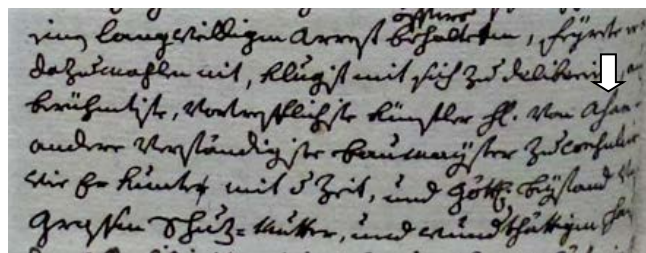 einen langweilligen Arrest öffters behalteten, feyrte
dazumahlen nit, klugist mit sich zu deliberie
berühmtiste, Vortrefflichste künstler H. Von Asam
andere Verständigste baumayster zu consulie
wie Er kunte mit d Zeit, und Göttl. beystand
grossen Schuz=Mutter, und wundthättigen